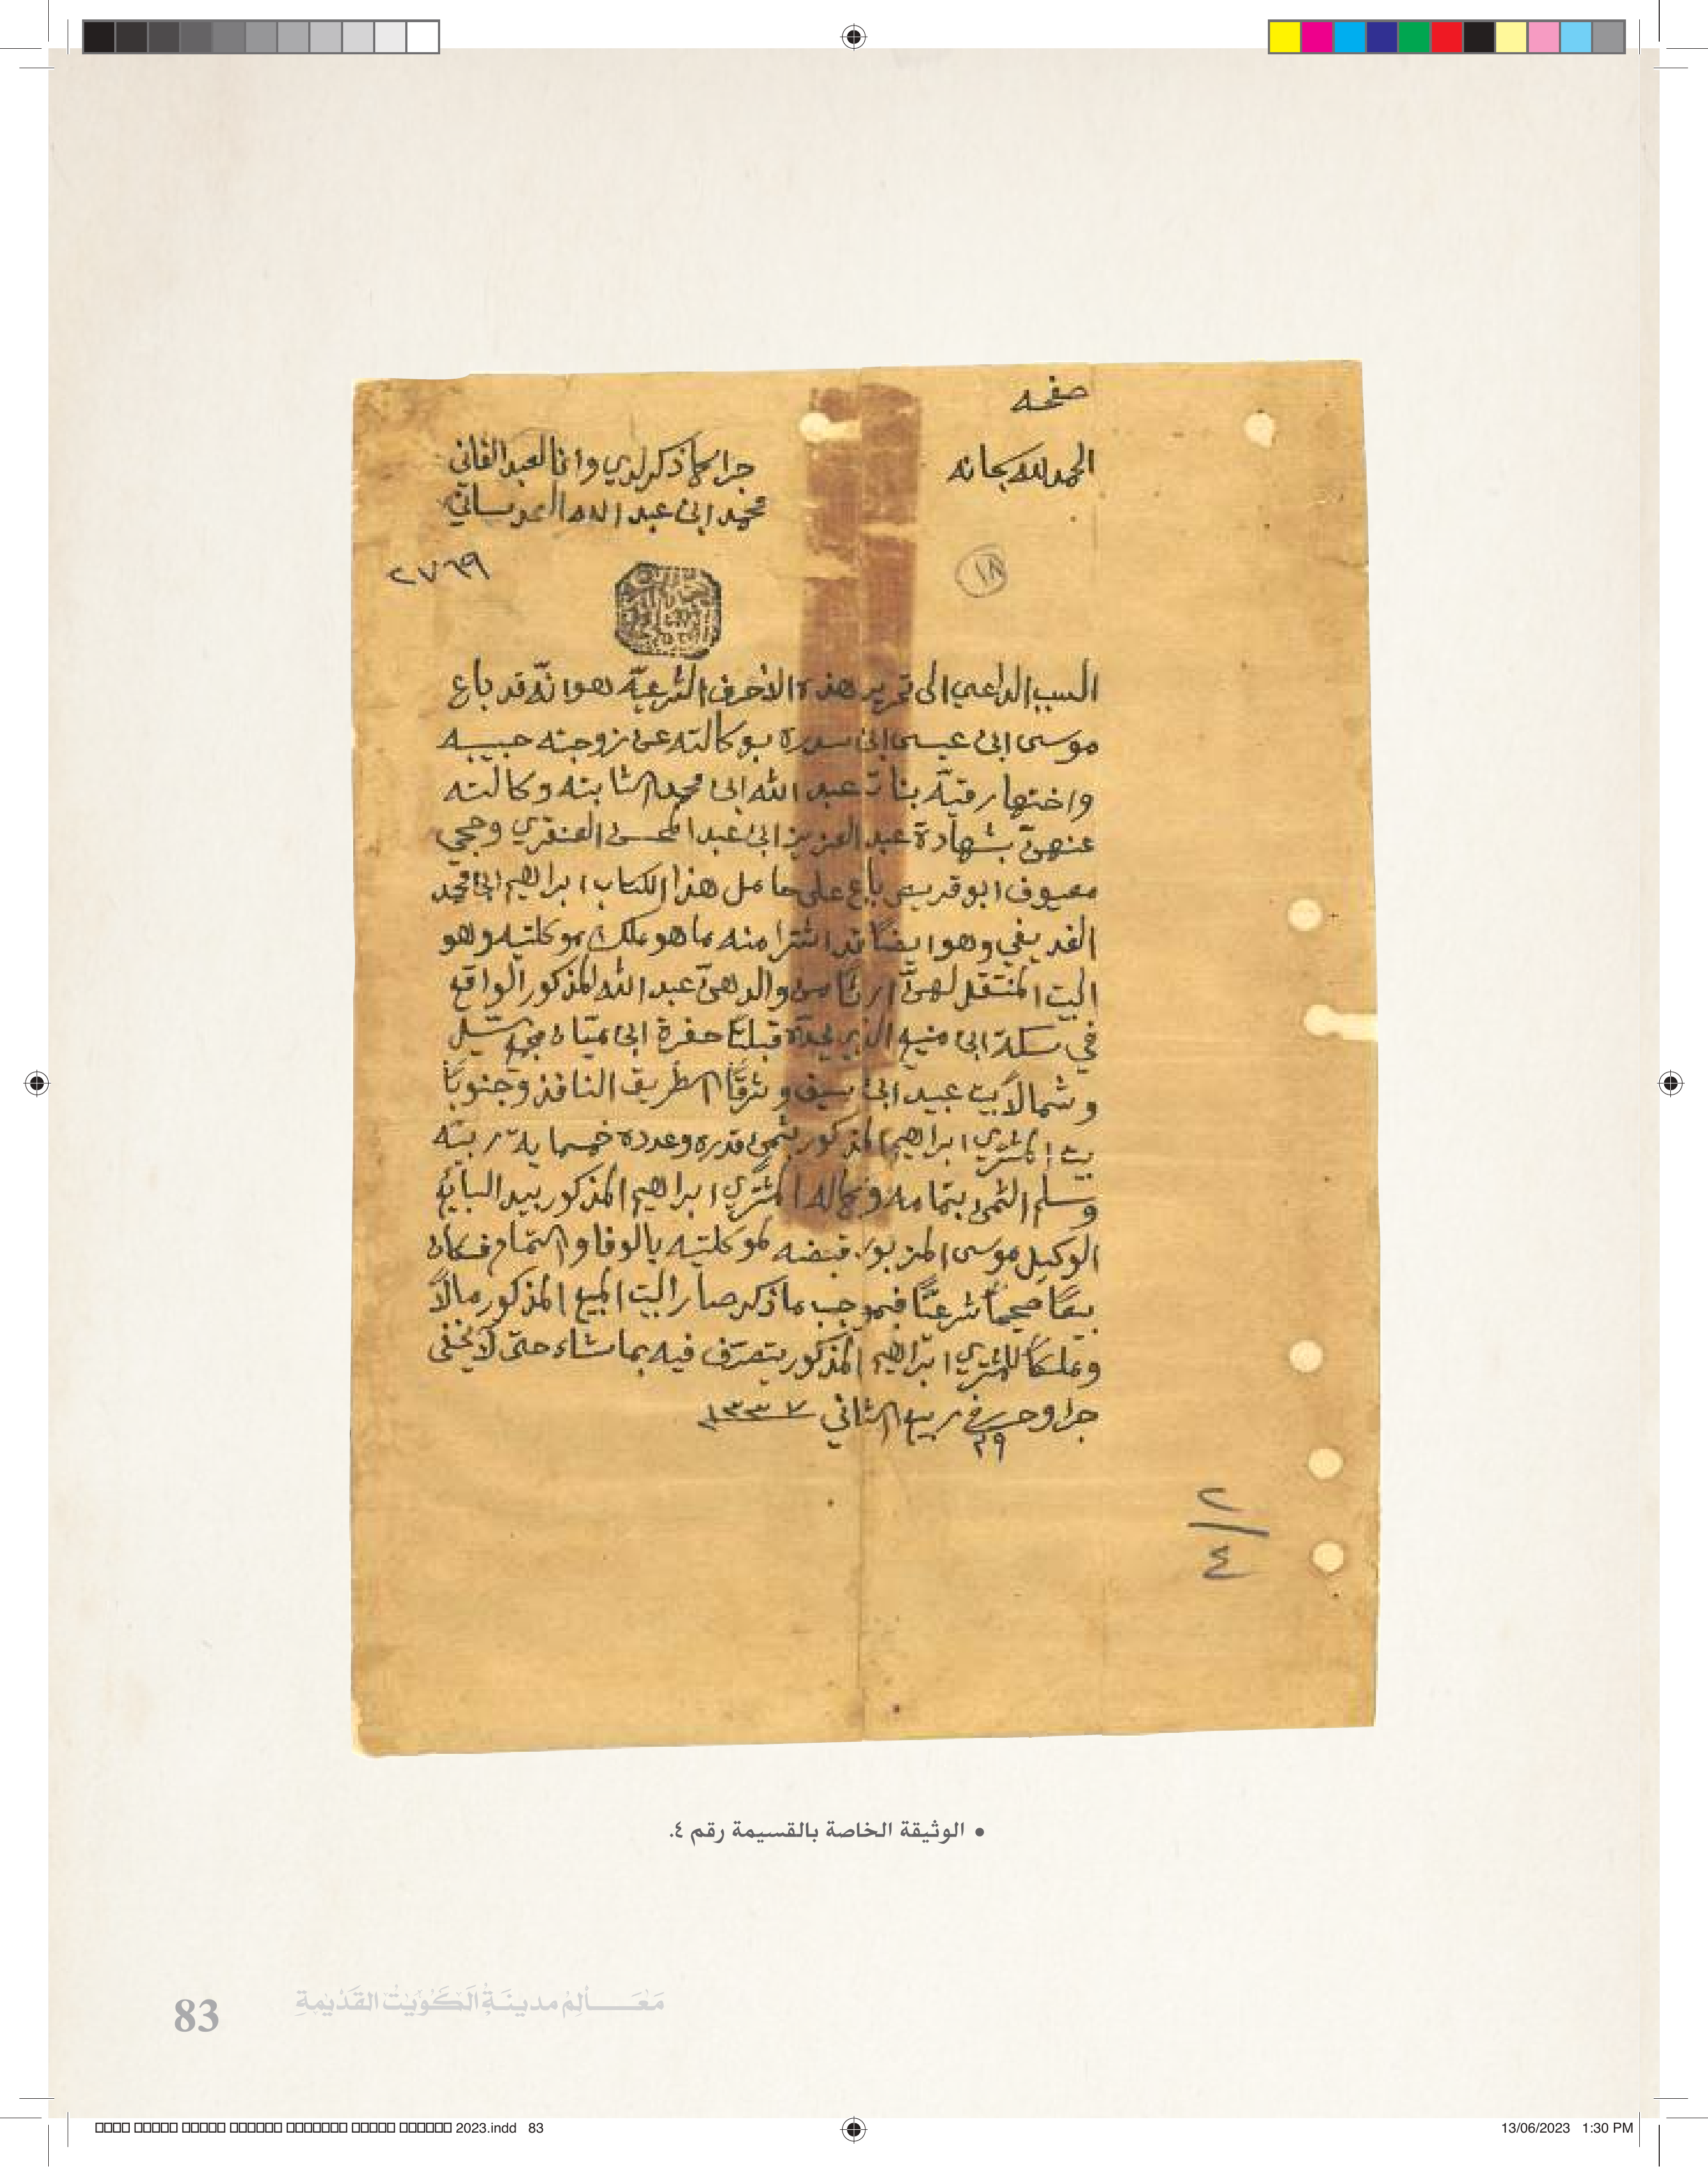 صفحه
الحمد لله سبحانه
جرا كما ذكر لدي وانا العبد الفاني
محمد ابن عبد الله العدساني
٢٧٦٩
١٨
السبب الداعي الى تحرير هذه الاحرف الشرعيّة هو انّه قد باع
موسى ابن عيسى ابن سدرة بوكالته عن زوجته حبيبه
واختها رقيّة بنات عبد الله ابن محمد الثابته وكالته
عنهنّ بشهادة عبد العزيز ابن عبد المحسن العنقري وحجي
معيوف ابو قريص باع على حامل هذا الكتاب ابراهيم ابن محمد
الغديفي وهو ايضًا قد اشترا منه ما هو ملك موكلتيه وهو
البيت المنتقل لهنّ ارثًا من والدهنّ عبد الله المذكور الواقع
في سكة ابن منيه الذي يحدّه قبلتًا حفرة ابن ميّان مجرى سيل
وشمالًا بيت عبيد ابن سيف وشرقًا الطريق النافذ وجنوبًا
بيت المشتري ابراهيم المذكور بثمن قدره وعدده خمسماية ربيّه
وسلم الثمن بتمامه وكماله المشتري ابراهيم المذكور بيد البايع
الوكيل موسى المزبور قبضه لموكلتيه بالوفا والتمام فكان
بيعًا صحيحًا شرعيًّا فبموجب ما ذكر صار البيت المبيع المذكور مالًا
وملكًا للمشتري ابراهيم المذكور يتصرّف فيه بما شاء حتى لا يخفى
جرا وحرر في ٢٩ ربيع الثاني ١٣٣٧
٢/٤
• الوثيقة الخاصة بالقسيمة رقم ٤.
83 مَعَـــالِمُ مدينَةِ الكُوَيْتِ القَدْيمةِ
2023.indd 83 13/06/2023 1:30 PM